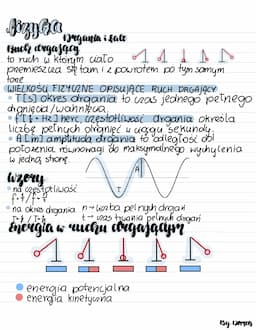 Fizyka
Drgania i fale
Ruch drgający
to ruch w którym ciało
przemieszcza się tam i z powrotem po tym samym
torze
WIELKOŚCI FIZYCZNE OPISUJĄCE RUCH DRGAJĄCY
• T[s] okres drgania to czas jednego pełnego
drgnięcia/wahnięcia.
herc, częstotliwość drgania określa
liczbę pełnych drgnięć w ciągu sekundy.
• A[m] amplituda drgania to odległość od
położenia równowagi do maksymalnego wychylenia
w jedną stronę.
A
T
Wzory
• na częstotliwość
• na okres drgania
n → liczba pełnych drgań
t → czas trwania pełnych drgań
Energia w ruchu drgającym
energia potencjalna
energia kinetyczna